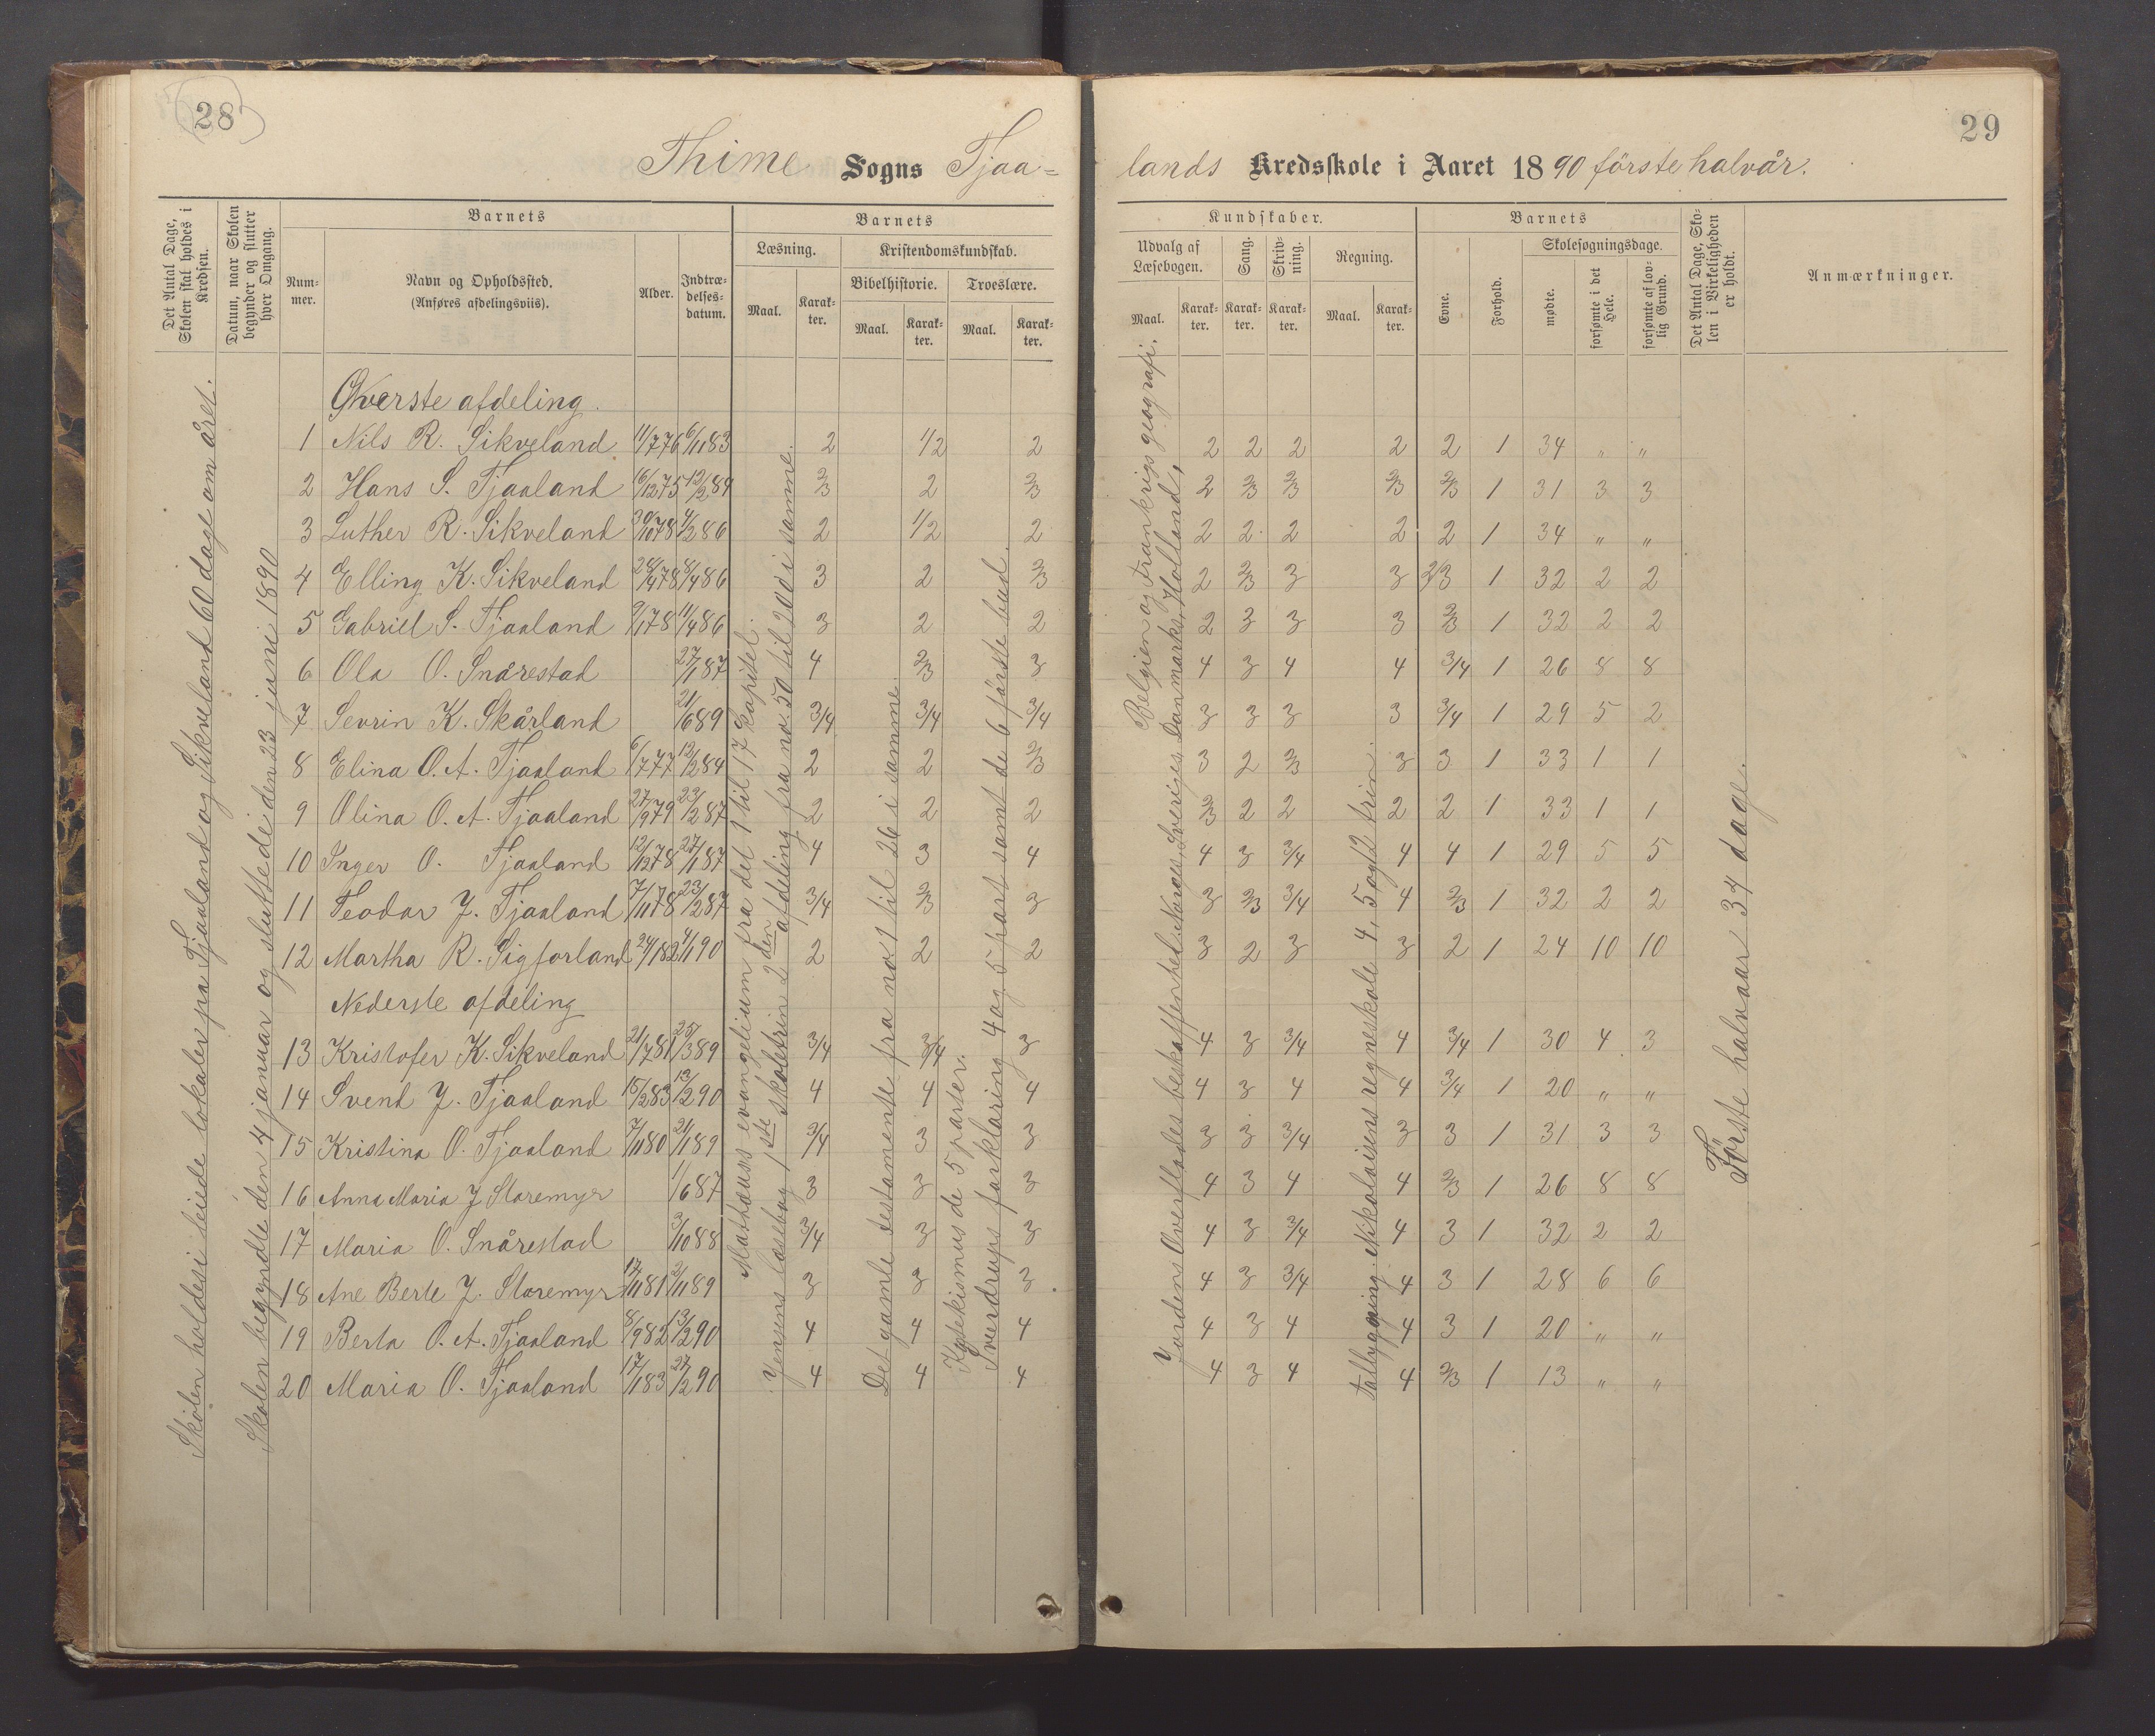 28
Thime Sogns Tjaa=
Det Antal Dage, Skolen skal holdes i Kredsen.
Datum, naar Skolen begynder og slutter hver Omgang.
Barnets
Num-mer.
Navn og Opholdssted.
(Anføres afdelingsviis).
Alder.
Indtræ-delses-datum.
Barnets
Læsning.
Kristendomskundskab.
Bibelhistorie.
Troeslære.
Maal.
Karak-ter.
Maal.
Karak-ter.
Maal.
Karak-ter.
Skolen holdes i leiede lokaler på Tjaaland og Sikveland 60 dage om året.
Skolen begyndte den 4 januar og sluttede den 23 juni 1890
Mathæus evangelium fra det 1 til 17 kapitel.
Jensens læsebog 1ste skoletrin 2den afdeling fra no. 50 til 200 i samme.
Det gamle testamente fra no 1 til 26 i samme.
Katekismus de 5 parter.
Sverdrups forklaring 4 og 5 part samt de 6 første bud.
Øverste afdeling.
1 Nils R. Sikveland 11/7 76 6/11 83 2 1/2 2
2 Hans S. Tjaaland 16/12 75 12/2 84 2/3 2 2/3
3 Luther R. Sikveland 30/10 78 4/2 86 2 1/2 2
4 Elling K. Sikveland 28/4 78 8/4 86 3 2 2/3
5 Gabriel S. Tjaaland 9/1 78 11/4 86 3 2 2
6 Ola O. Snårestad 27/1 87 4 2/3 3
7 Sevrin K. Skårland 21/6 89 3/4 3/4 3/4
8 Elina O. A. Tjaaland 6/7 77 12/2 84 2 2 2/3
9 Olina O. A. Tjaaland 27/9 79 23/2 87 2 2 2
10 Inger O. Tjaaland 12/12 78 27/1 87 4 3 4
11 Teodor J. Tjaaland 7/11 78 23/2 87 3/4 2/3 3
12 Martha R. Sigforland 24/1 82 4/1 90 2 2 2
Nederste afdeling
13 Kristofer K. Sikveland 21/7 81 25/3 89 3/4 3/4 3
14 Svend J. Tjaaland 15/2 83 13/2 90 4 4 4
15 Kristina O. Tjaaland 7/11 80 21/1 89 3/4 3 3
16 Anna Maria J Storemyr 1/6 87 3 3 3
17 Maria O. Snårestad 3/10 88 3/4 3 3
18 Ane Berte J. Storemyr 17/11 81 2/11 89 3 3 3
19 Berta O. A. Tjaaland 8/9 82 13/2 90 4 4 4
20 Maria O. Tjaaland 17/1 83 27/2 90 4 4 4
29
lands Kredsskole i Aaret 1890 förste halvår.
Kundskaber.
Udvalg af Læsebogen.
Sang.
Skriv-ning.
Regning.
Maal.
Karak-ter.
Karak-ter.
Karak-ter.
Maal.
Karak-ter.
Barnets
Evne.
Forhold.
Skolesøgningsdage.
mødte.
forsømte i det Hele.
forsømte af lov-lig Grund.
Det Antal Dage, Sko-len i Virkeligheden er holdt.
Anmærkninger.
Jordens Overflades beskaffenhed. Norges, Sveriges, Danmarks, Hollands,
Belgien og Frankrigs geografi.
talbygning. Nikolaisens regneskole 4, 5 og 12 trin.
Förste halvaar 34 dage.
2 2 2 2 2 1 34 " "
2 2/3 2/3 2/3 2/3 1 31 3 3
2 2 2 2 2 1 34 " "
2 2/3 3 3 2/3 1 32 2 2
2 3 3 3 2/3 1 32 2 2
4 3 4 4 3/4 1 26 8 8
3 3 3 3 3/4 1 29 5 2
3 2 2/3 3 3 1 33 1 1
2/3 2 2 2 2 1 33 1 1
4 3 3/4 4 4 1 29 5 5
3 2/3 3/4 4 2/3 1 32 2 2
3 2 3 3 2 1 24 10 10
4 3 3/4 4 3/4 1 30 4 3
4 3 4 4 3/4 1 20 " "
3 3 3/4 3 3 1 31 3 3
4 3 4 4 2/3 1 26 8 8
4 3 3/4 4 3 1 32 2 2
4 3 3/4 4 3 1 28 6 6
4 3 4 4 3 1 20 " "
4 3 4 4 2/3 1 13 " "